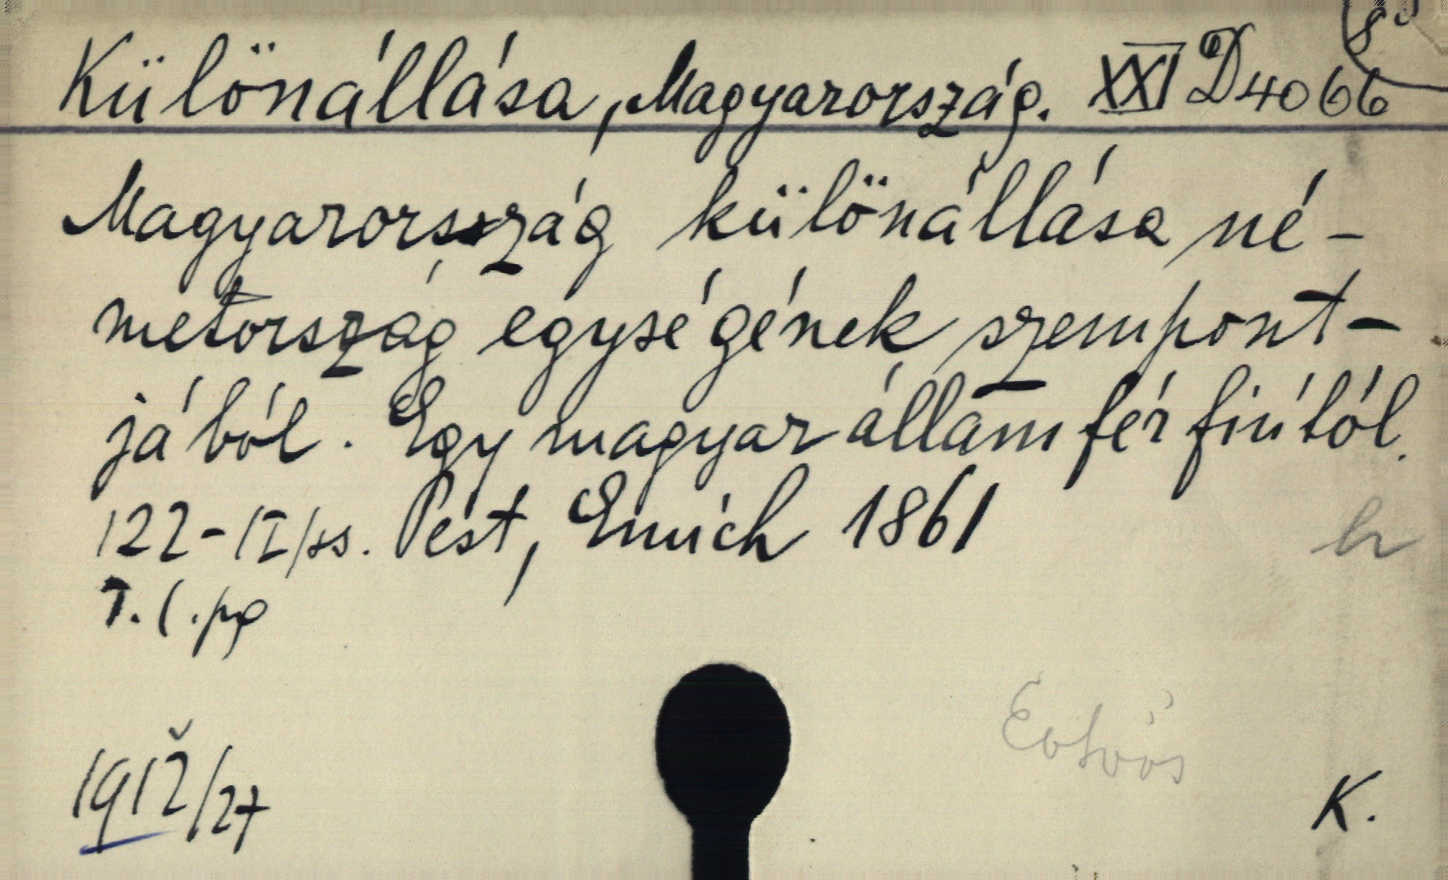 8°
Különállása, Magyarország. XXI D4066
Magyarország különállása né-
metország egységének szempont-
jából. Egy magyar államférfiútól.
122-1 I/ss. Pest, Emich 1861
h
T. l. pg
Eötvös
1912/27
K.